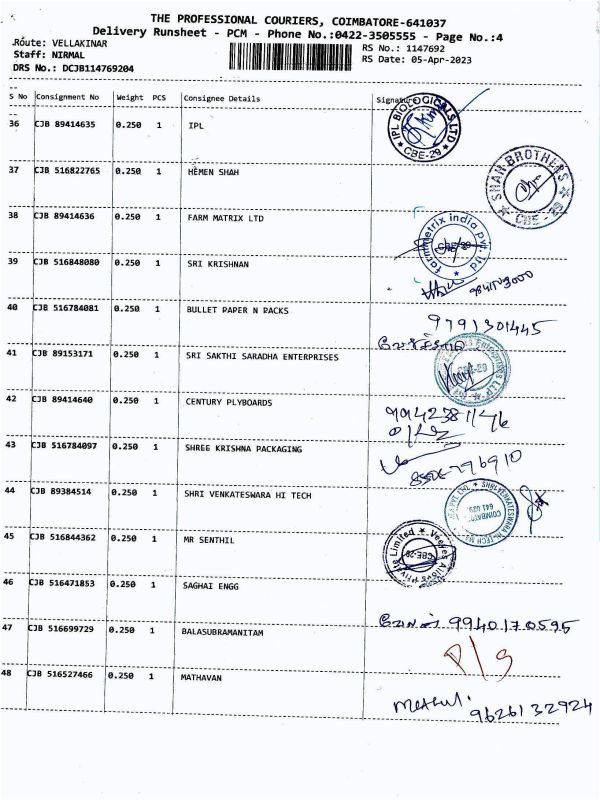 THE PROFESSIONAL COURIERS, COIMBATORE-641037
Delivery Runsheet - PCM - Phone No.:0422-3505555 - Page No.:4
Route: VELLAKINAR RS No.: 1147692
Staff: NIRMAL RS Date: 05-Apr-2023
DRS No.: DCJB114769204
S No Consignment No Weight PCS Consignee Details Signature
36 CJB 89414635 0.250 1 IPL
IPL BIOLOGICALS LTD CBE-29
37 CJB 516822765 0.250 1 HEMEN SHAH
SHAH BROTHERS CBE - 29
38 CJB 89414636 0.250 1 FARM MATRIX LTD
farmmetrix india pvt ltd CBE-29
39 CJB 516848080 0.250 1 SRI KRISHNAN
40 CJB 516784081 0.250 1 BULLET PAPER N PACKS
9791301445
41 CJB 89153171 0.250 1 SRI SAKTHI SARADHA ENTERPRISES
42 CJB 89414640 0.250 1 CENTURY PLYBOARDS
9942381146
43 CJB 516784097 0.250 1 SHREE KRISHNA PACKAGING
44 CJB 89384514 0.250 1 SHRI VENKATESWARA HI TECH
SHRI VENKATESWARA HI-TECH
641 029
45 CJB 516844362 0.250 1 MR SENTHIL
Alloys Private Limited CBE-29
46 CJB 516471853 0.250 1 SAGHAI ENGG
9940170595
47 CJB 516699729 0.250 1 BALASUBRAMANITAM
P/s
48 CJB 516527466 0.250 1 MATHAVAN
9626132924